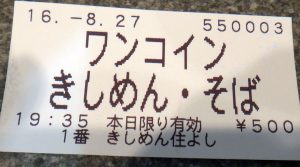 16.-8.27 550003
ワンコイン
きしめん・そば
19:35 本日限り有効 ￥500
1番 きしめん住よし